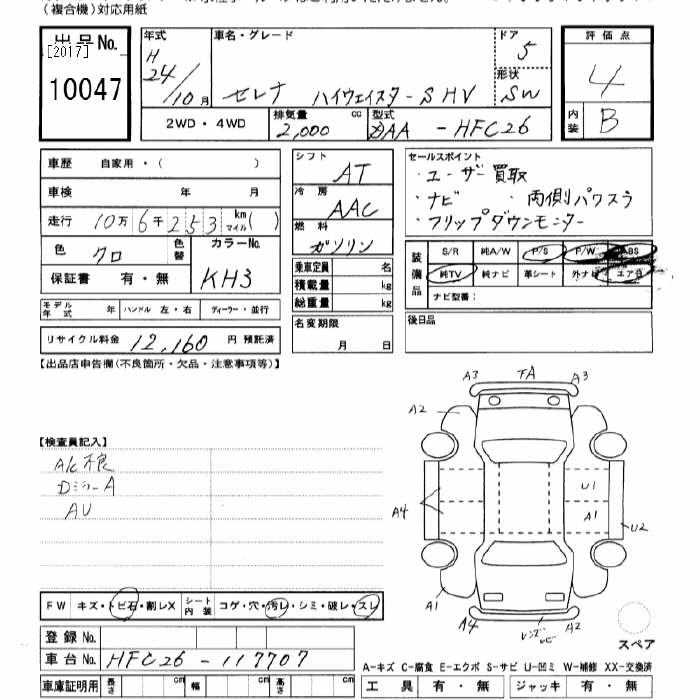 (複合機)対応用紙
出品No. [2017] 10047
年式 H 24/10月
車名・グレード セレナ ハイウェイスターS HV
ドア 5
形状 SW
評価点 4
内装 B
2WD・4WD
排気量 2,000 cc
型式 DAA-HFC26
車歴 自家用・( )
車検 年 月
走行 10万6千253 km マイル( )
色 クロ 色替
カラーNo. KH3
保証書 有・無
モデル年式 年 ハンドル 左・右 ディーラー・並行
リサイクル料金 12,160 円 預託済
シフト AT
冷房 AAC
燃料 ガソリン
乗車定員 名
積載量 kg
総重量 kg
名変期限 月 日
セールスポイント
・ユーザー買取
・ナビ ・両側パワスラ
・フリップダウンモニター
装備品 S/R 純A/W P/S P/W ABS
純TV 純ナビ 革シート 外ナビ エアB
ナビ型番:
後日品
【出品店申告欄(不良箇所・欠品・注意事項等)】
【検査員記入】
A/C不良
DミラーA
AU
A3 FA A3
A2
U1
A4 A1
U2
A1
A4 A2
FW キズ・トビ石・割レX シート内装 コゲ・穴・汚レ・シミ・破レ・スレ
スペア
登録No.
車台No. HFC26-117707
車庫証明用 長さ cm 幅 cm 高さ cm
A-キズ C-腐食 E-エクボ S-サビ U-凹ミ W-補修 XX-交換済
工具 有・無 ジャッキ 有・無